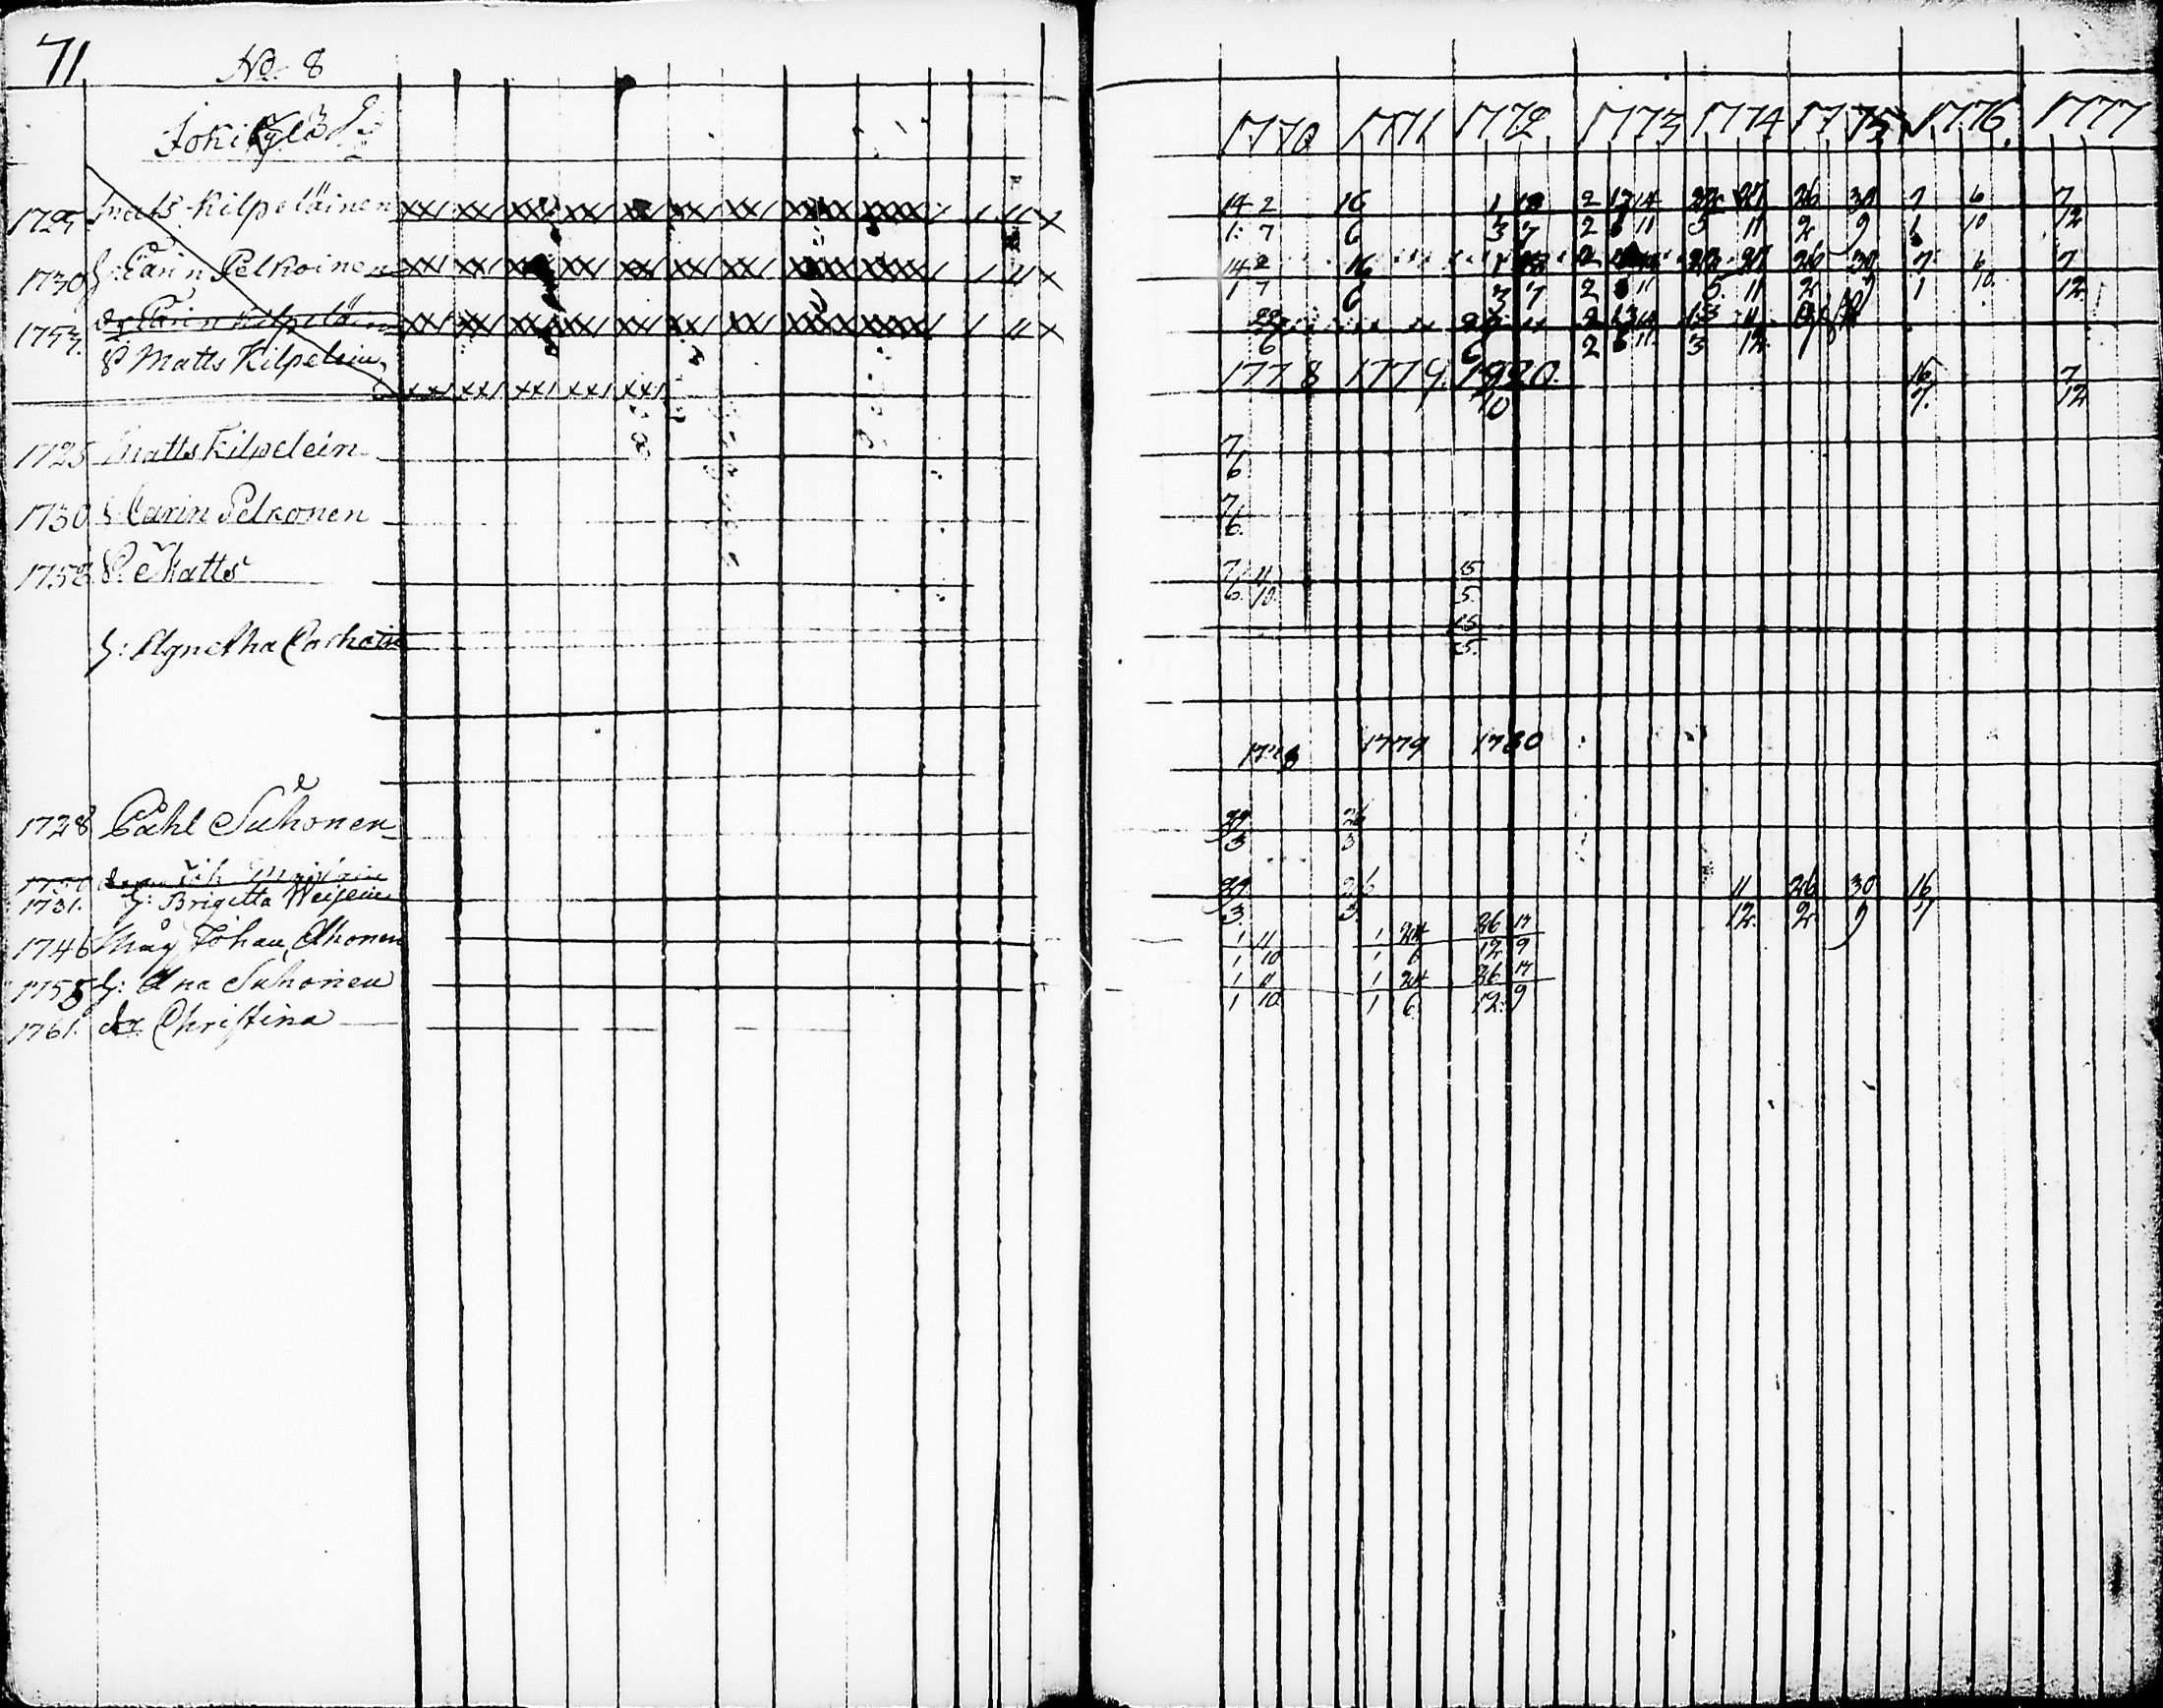 71
No. 8
1770 1771 1772 1773 1774 1775 1776 1777
Jokikylä
1725 Matts Kilpeläinen xx/ xx/ xx/ xx/ xx/ xx/ xx/ 14 2 16 1 18 2 14 27 26 30 7 6 7
1: 7 6 3 7 2 11 5 11 2 9 1 10 12
1730 H: Carin Pelkoinen xx/ xx/ xx/ xx/ xx/ xx/ xx/ 14 2 16 1 2 27 26 30 7 6 7
1 7 6 3 7 2 11 5 11 2 9 1 10 12
1753. dr Carin Kilpeläin xx/ xx/ xx/ xx/ xx/ xx/ xx/ 22 2 13 14 13 11
6 6 2 11 3 12
S Matts Kilpelein 1778 1779 1780 16 7
xx/ xx/ xx/ xx/ xx/ 10 7. 12
1725 Matts Kilpelein 7
6
1730 H Carin Pelkonen 7
6.
1753 S. Matts 7 11 15
6. 10. 5.
H: Agnetha 15
5.
1778 1779 1780
1728 Påhl Suhonen 29 26
3 3
1750
1731. H: Brigitta 29 26 11 26 30 16
3 3 12. 2 9 7
1746 Måg Johan Ahonen 1 11 1 24 26 17
1 10 1 6 12 9
1755 H: Ana Suhonen 1 11 1 24 26 17
1 10 1 6 12. 9
1761. dr Christina